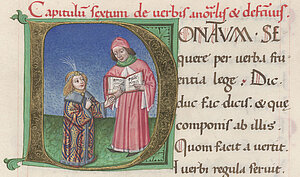 Capitulum sextum de verbis anorlis & defciuis.
DONAVM. SE
quere per verba fru
entia lege. Dic
duc fac ducis. & que
componis ab illis.
Quom facit a vertit.
I verbi regula seruit.